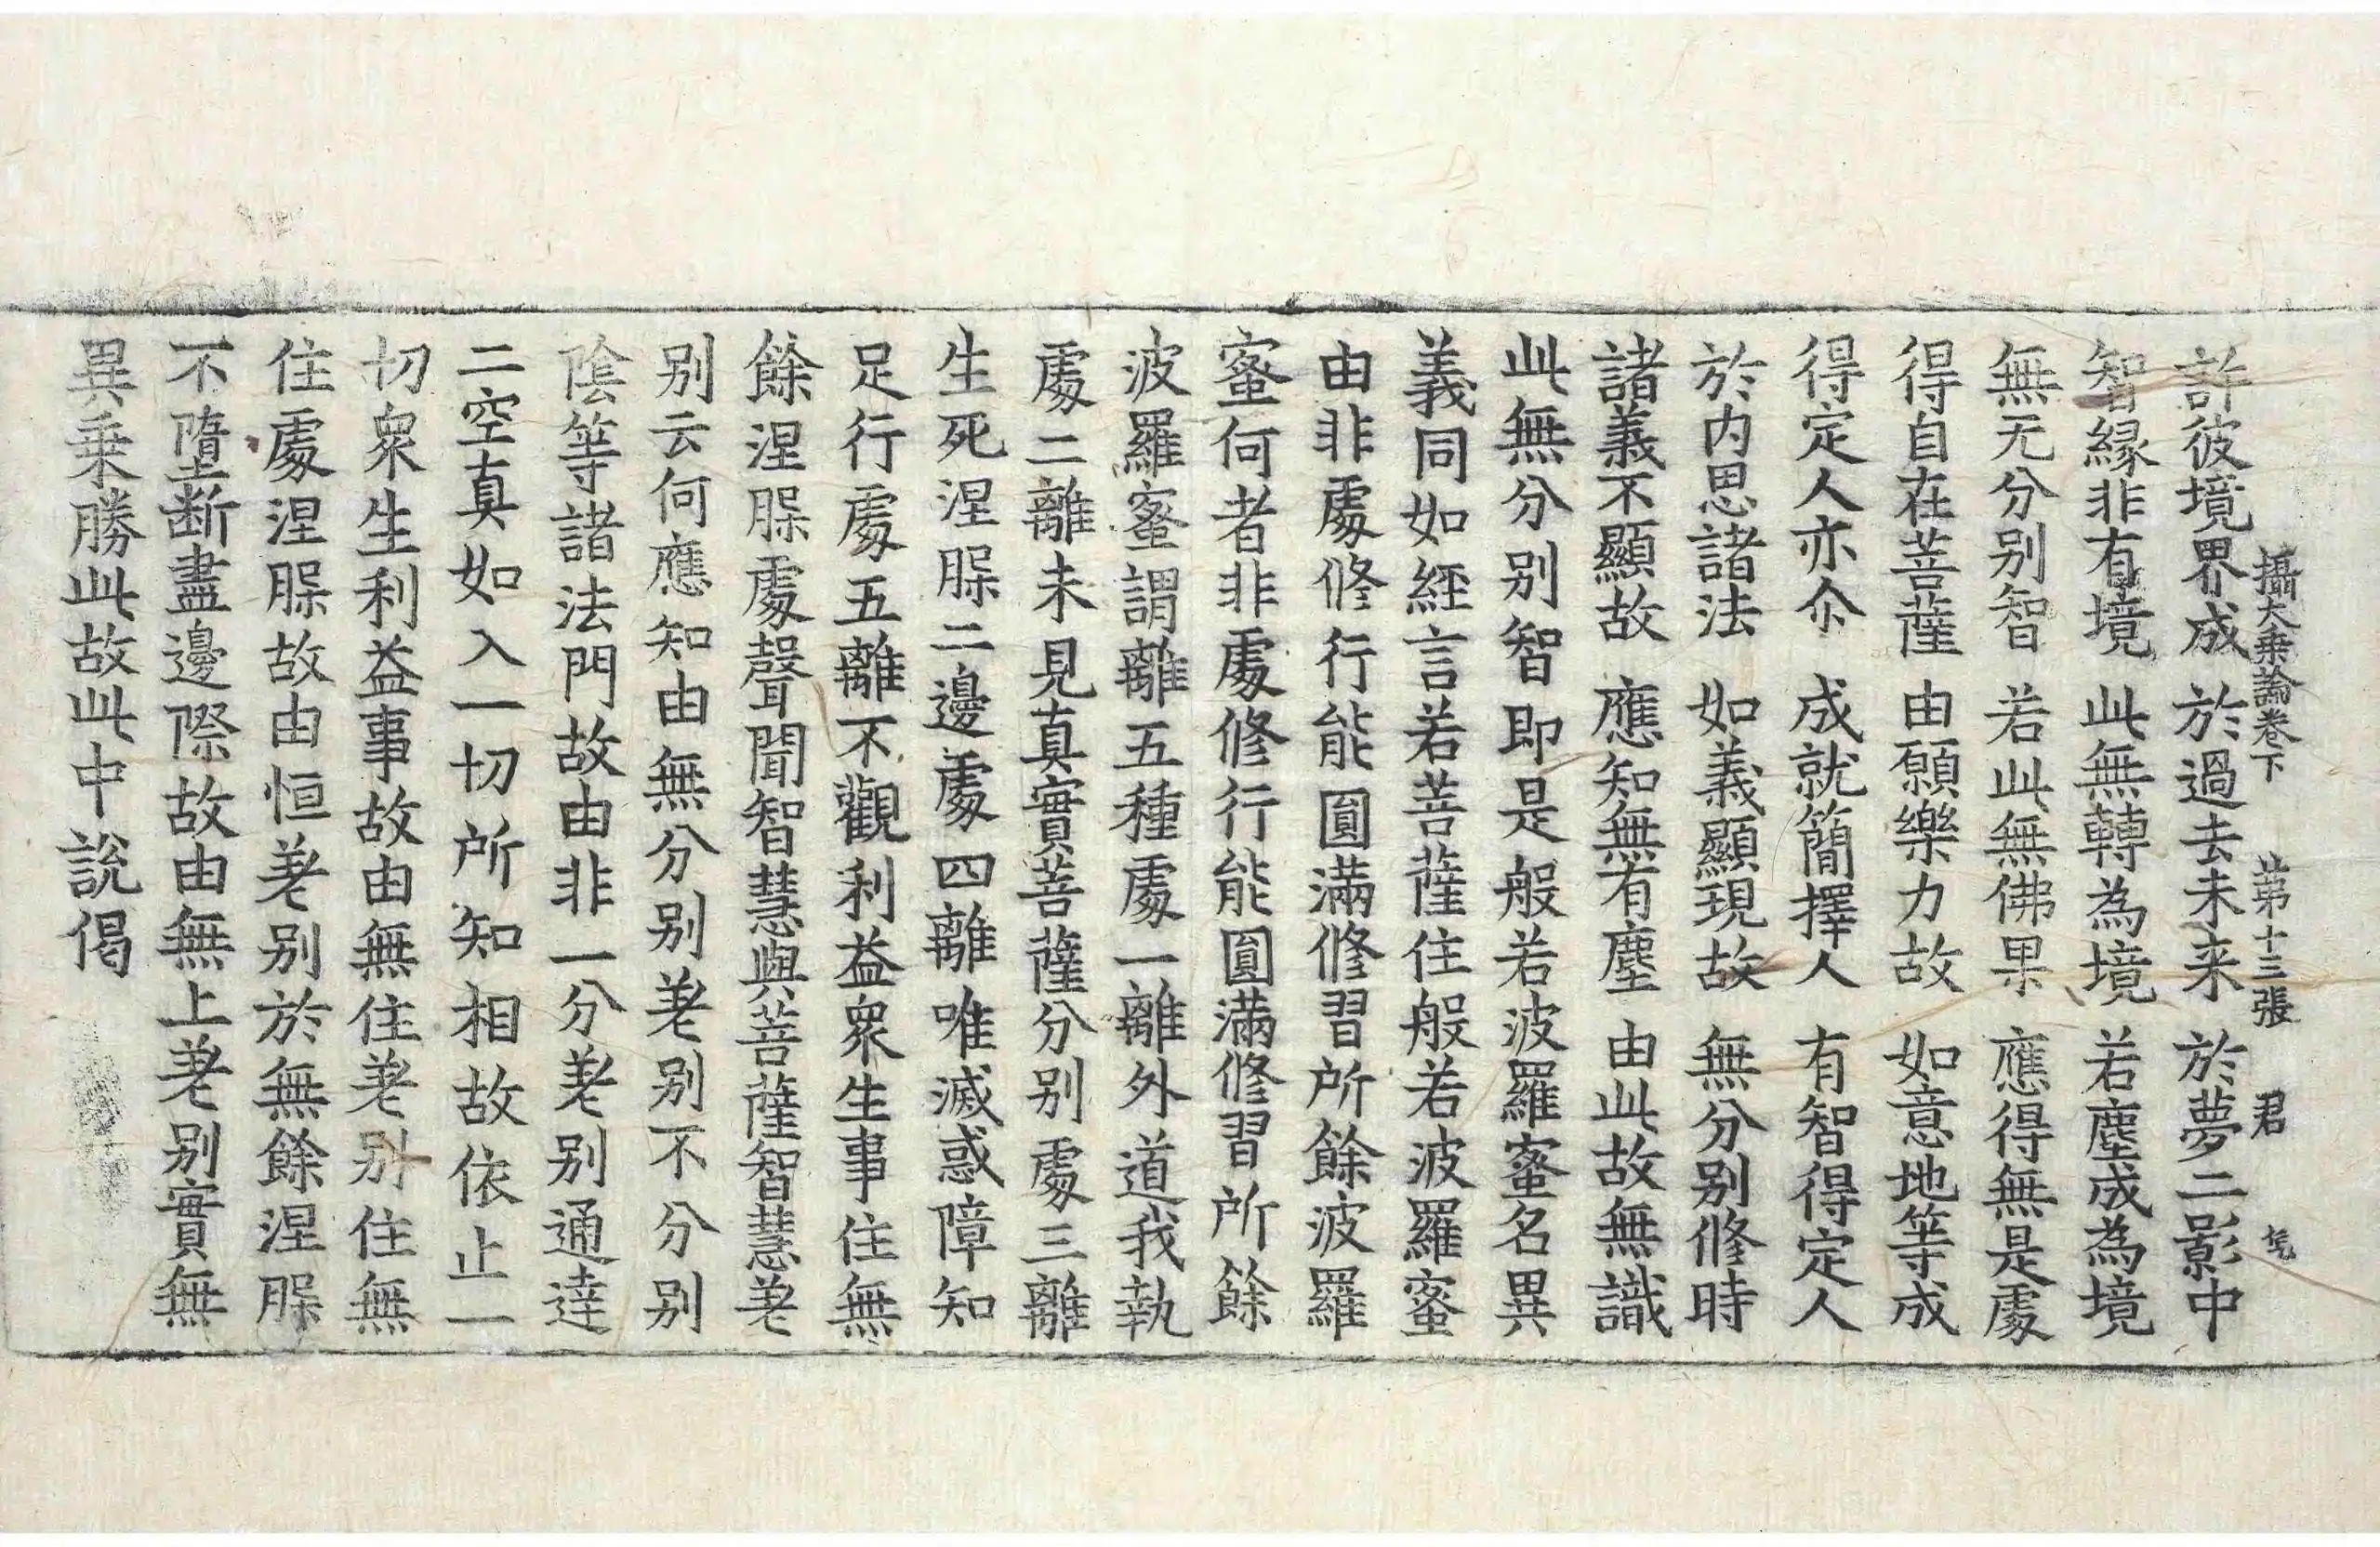 攝大乘論卷下 第十三張 君
許彼境界成 於過去未来 於夢二影中
智縁非有境 此無轉為境 若塵成為境
無无分別智 若此無佛果 應得無是處
得自在菩薩 由願樂力故 如意地等成
得定人亦尒 成就簡擇人 有智得定人
於內思諸法 如義顯現故 無分別修時
諸義不顯故 應知無有塵 由此故無識
此無分別智即是般若波羅蜜名異
義同如經言若菩薩住般若波羅蜜
由非處修行能圓滿修習所餘波羅
蜜何者非處修行能圓滿修習所餘
波羅蜜謂離五種處一離外道我執
處二離未見真實菩薩分別處三離
生死涅槃二邊處四離唯滅惑障知
足行處五離不觀利益衆生事住無
餘涅槃處聲聞智慧與菩薩智慧差
別云何應知由無分別差別不分別
陰等諸法門故由非一分差別通達
二空真如入一切所知相故依止一
切衆生利益事故由無住差別住無
住處涅槃故由恒差別於無餘涅槃
不墮断盡邊際故由無上差別實無
異乗勝此故此中說偈